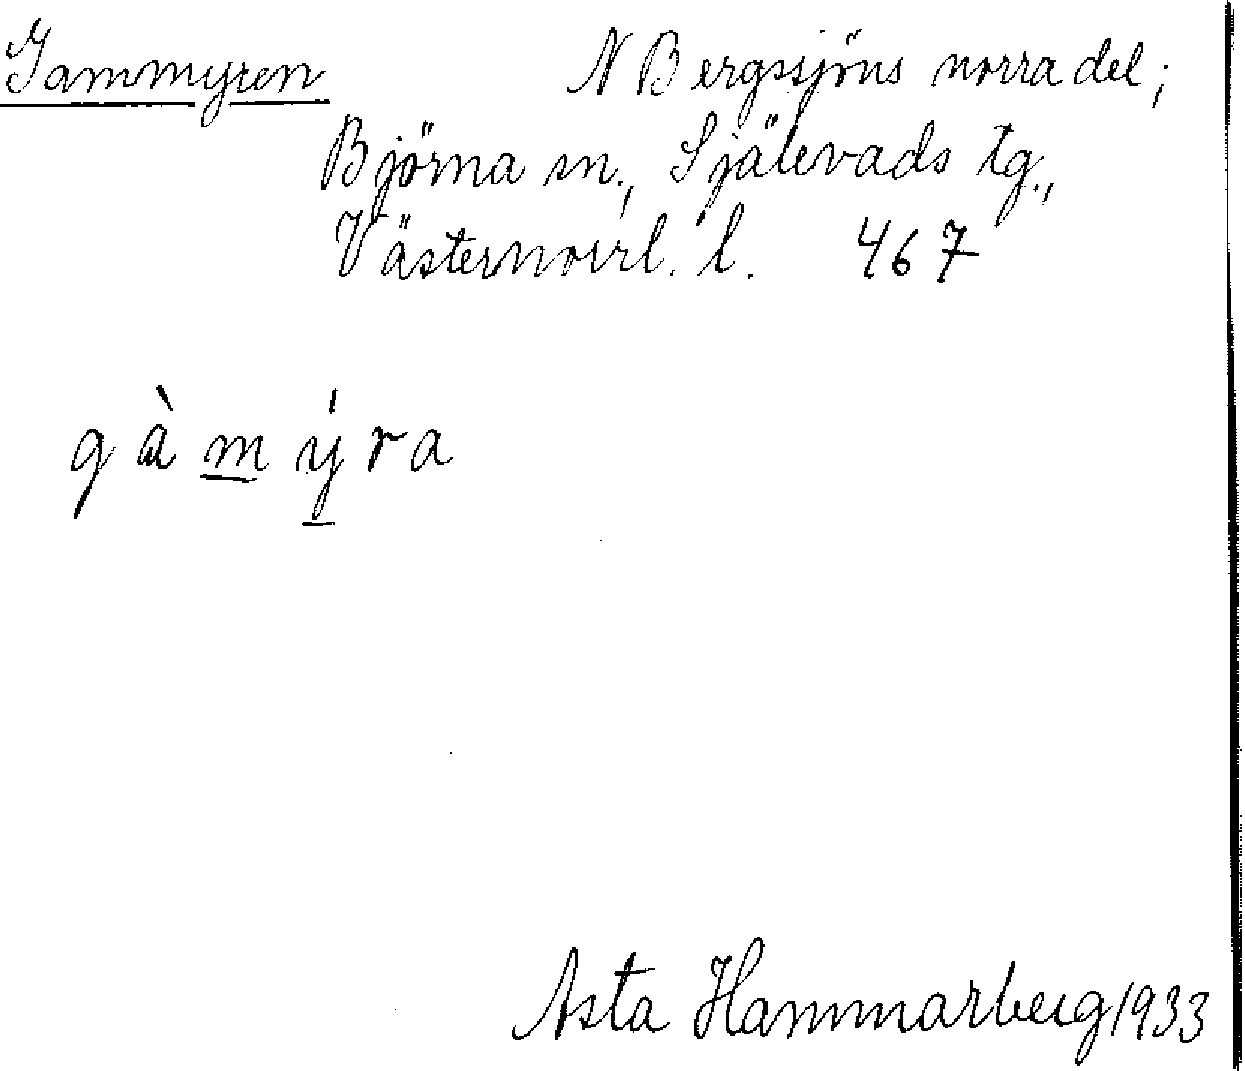 Gammyren N Bergssjöns norra del;
Björna sn., Själevads tg.,
Västernorrl. l. 467
gàmýra
Asta Hammarberg 1933